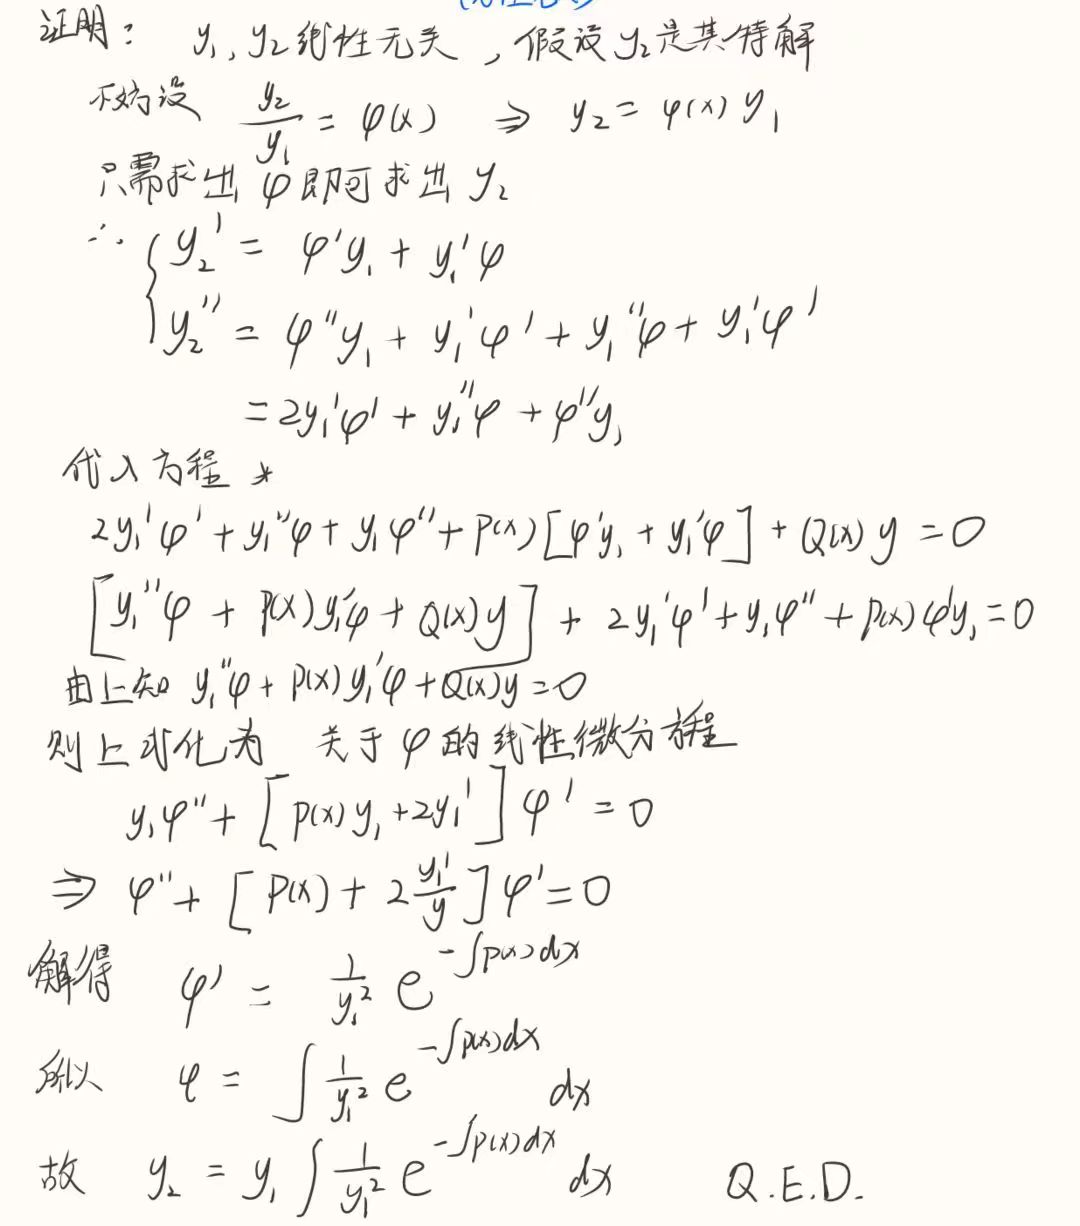 证明： y₁, y₂ 线性无关，假设 y₂ 是其特解
不妨设 y₂/y₁ = φ(x) ⇒ y₂ = φ(x) y₁
只需求出 φ 即可求出 y₂
∴ { y₂' = φ'y₁ + y₁'φ
y₂'' = φ''y₁ + y₁'φ' + y₁''φ + y₁'φ'
= 2y₁'φ' + y₁''φ + φ''y₁
代入方程 *
2y₁'φ' + y₁''φ + y₁φ'' + P(x)[φ'y₁ + y₁'φ] + Q(x)y = 0
[y₁''φ + P(x)y₁'φ + Q(x)y] + 2y₁'φ' + y₁φ'' + P(x)φ'y₁ = 0
由上知 y₁''φ + P(x)y₁'φ + Q(x)y = 0
则上式化为 关于 φ 的线性微分方程
y₁φ'' + [P(x)y₁ + 2y₁']φ' = 0
⇒ φ'' + [P(x) + 2 y₁'/y]φ' = 0
解得 φ' = 1/y₁² e^{-∫P(x)dx}
所以 φ = ∫ 1/y₁² e^{-∫P(x)dx} dx
故 y₂ = y₁ ∫ 1/y₁² e^{-∫P(x)dx} dx Q.E.D.